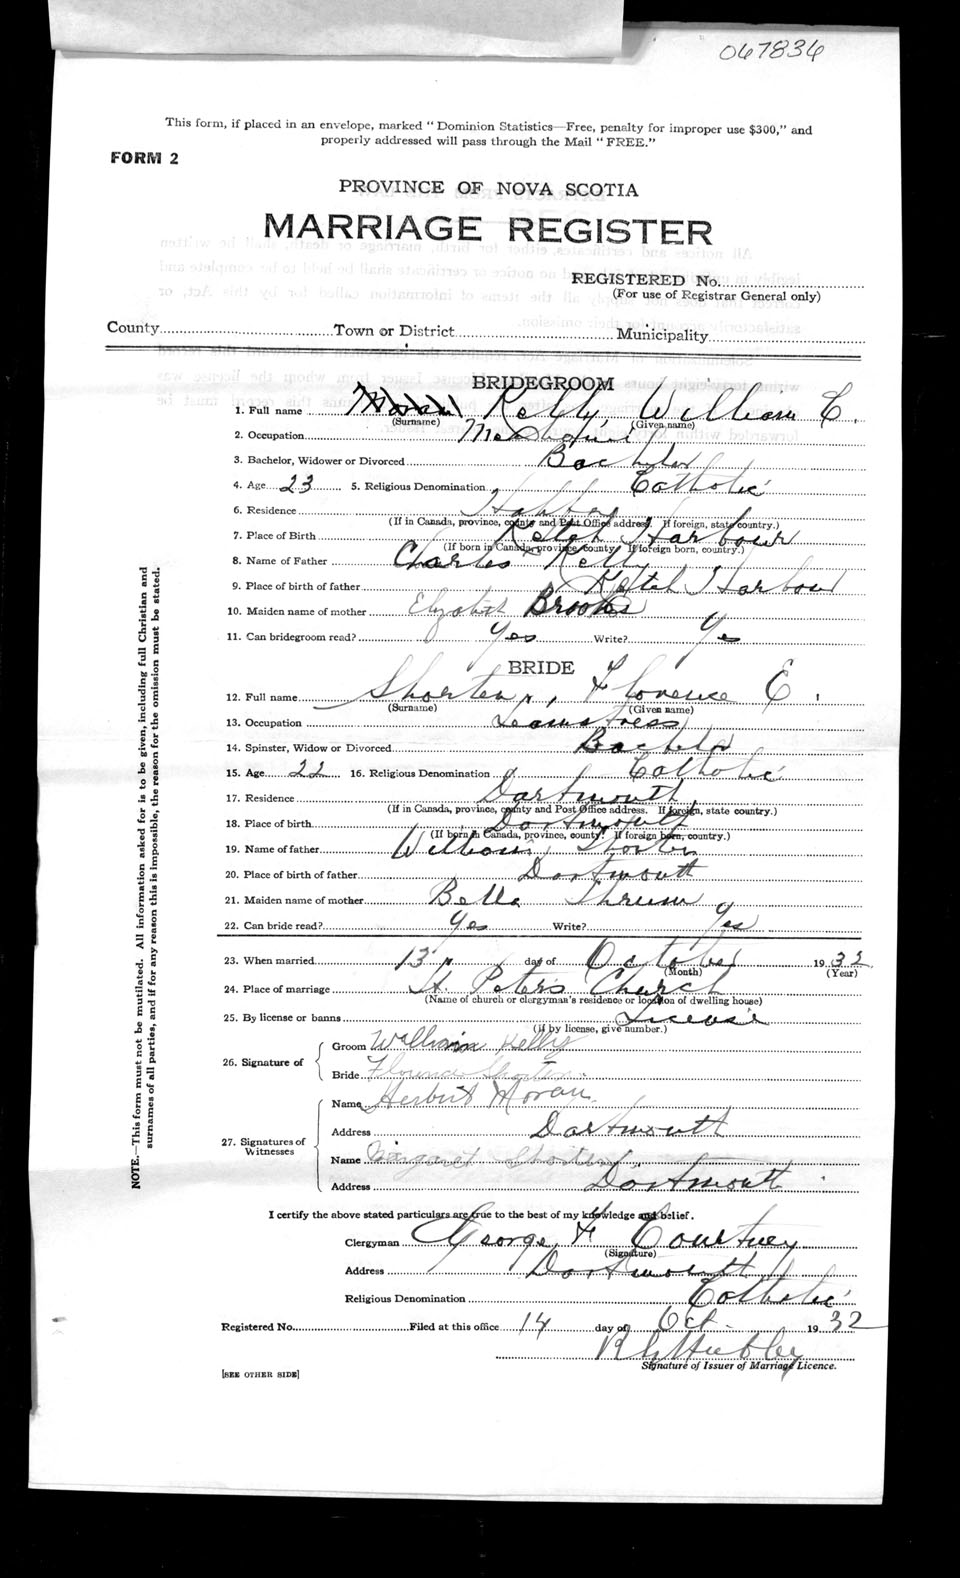 067836
This form, if placed in an envelope, marked "Dominion Statistics—Free, penalty for improper use $300," and
properly addressed will pass through the Mail "FREE."
FORM 2
PROVINCE OF NOVA SCOTIA
MARRIAGE REGISTER
REGISTERED No.
(For use of Registrar General only)
County Town or District Municipality
BRIDEGROOM
1. Full name Kelly, William C.
(Surname) (Given name)
2. Occupation
3. Bachelor, Widower or Divorced Bachelor
4. Age 23 5. Religious Denomination Catholic
6. Residence
(If in Canada, province, county and Post Office address. If foreign, state country.)
7. Place of Birth Ketch Harbour
(If born in Canada, province, county. If foreign born, country.)
8. Name of Father Charles Kelly
9. Place of birth of father Ketch Harbour
10. Maiden name of mother Elizabeth Brooks
11. Can bridegroom read? Yes Write? Yes
BRIDE
12. Full name Shorten, Florence E.
(Surname) (Given name)
13. Occupation Seamstress
14. Spinster, Widow or Divorced Bachelor
15. Age 22 16. Religious Denomination Catholic
17. Residence Dartmouth
(If in Canada, province, county and Post Office address. If foreign, state country.)
18. Place of birth Dartmouth
(If born in Canada, province, county. If foreign born, country.)
19. Name of father William Shorten
20. Place of birth of father Dartmouth
21. Maiden name of mother Bella
22. Can bride read? Yes Write? Yes
23. When married 13 day of October 1932
(Month) (Year)
24. Place of marriage St. Peters Church
(Name of church or clergyman's residence or location of dwelling house)
25. By license or banns License
(if by license, give number.)
26. Signature of
Groom William Kelly
Bride Florence Shorten
27. Signatures of Witnesses
Name Herbert Moran
Address Dartmouth
Name Margaret Shorten
Address Dartmouth
I certify the above stated particulars are true to the best of my knowledge and belief.
Clergyman George F Courtney
(Signature)
Address Dartmouth
Religious Denomination Catholic
Registered No. Filed at this office 14 day of Oct. 1932
Signature of Issuer of Marriage Licence.
[SEE OTHER SIDE]
NOTE.—This form must not be mutilated. All information asked for is to be given, including full Christian and
surnames of all parties, and if for any reason this is impossible, the reason for the omission must be stated.